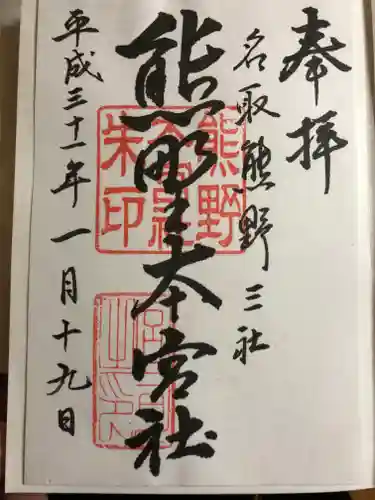 奉拝
名取熊野三社
熊野本宮社
平成三十一年一月十九日
熊野
朱印